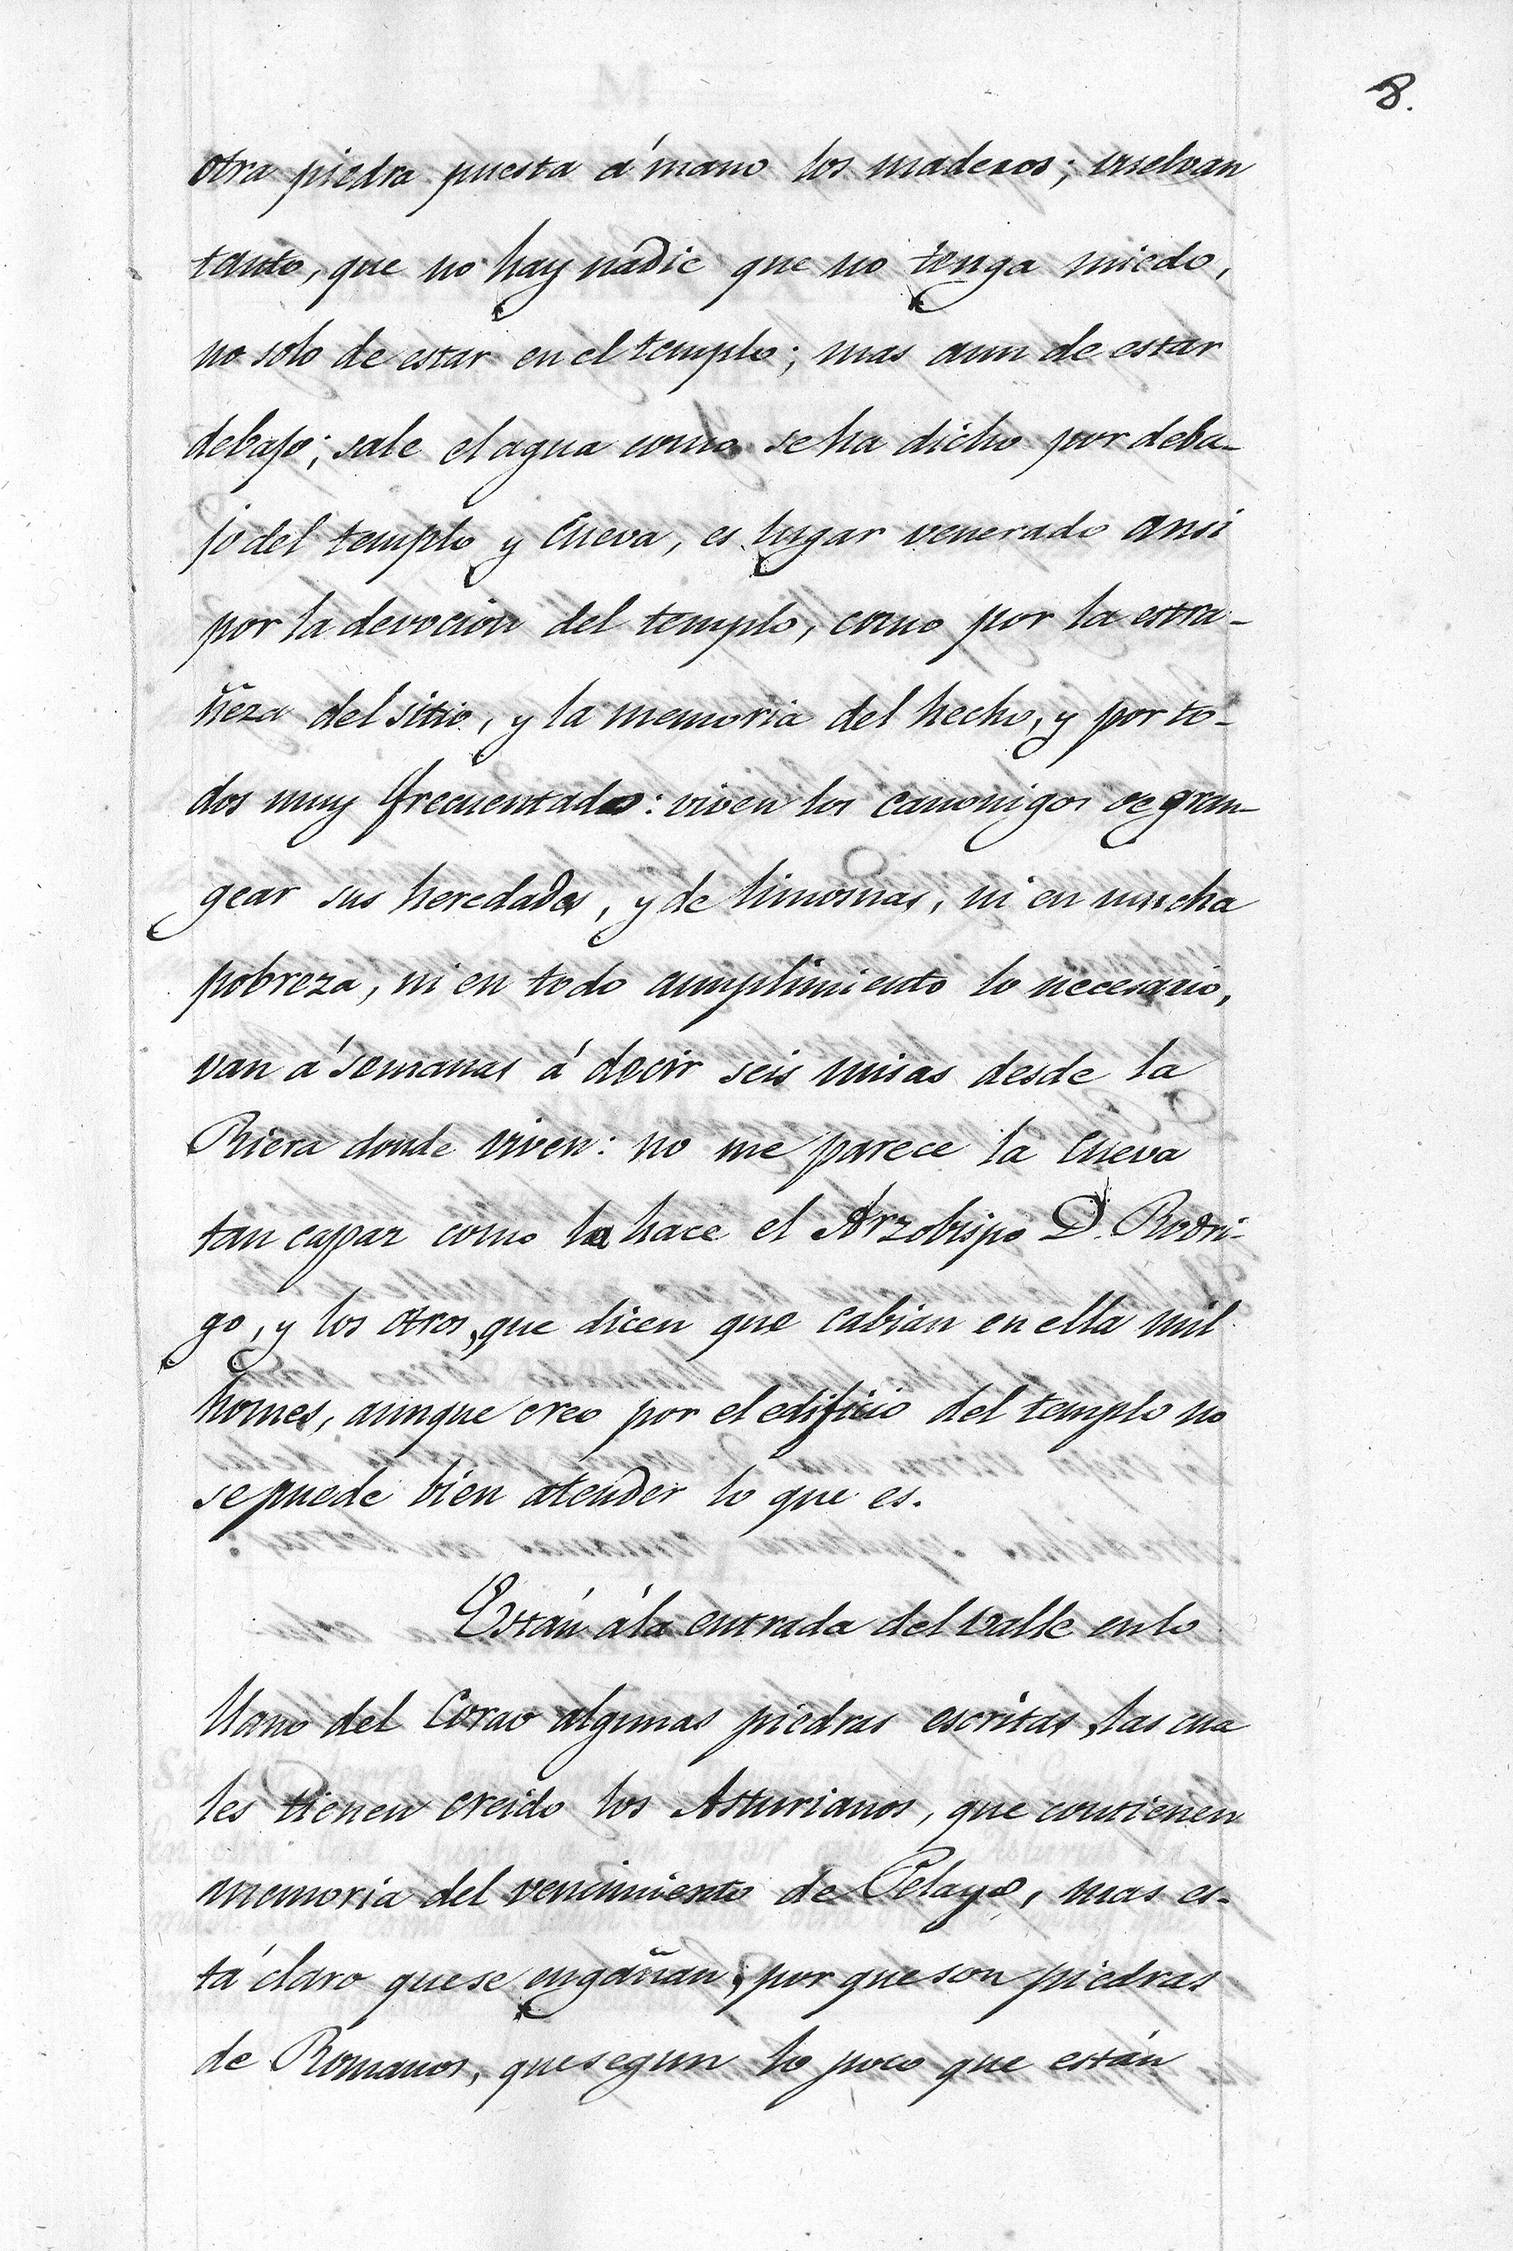 8.
otra piedra puesta á mano los maderos; vuelvan
tanto, que no hay nadie que no tenga miedo,
no solo de estar en el templo; mas aun de estar
debajo; sale el agua como se ha dicho por deba-
jo del templo y Cueva, es lugar venerado ansi
por la devocion del templo, como por la estra-
ñeza del sitio, y la memoria del hecho, y por to-
dos muy frecuentado: viven los canonigos de gran-
gear sus heredades, y de limosnas, ni en mucha
pobreza, ni en todo cumplimiento lo necesario,
van á semanas á decir seis misas desde la
Riera donde viven: no me parece la Cueva
tan capaz como la hace el Arzobispo D. Rodri-
go, y los otros, que dicen que cabian en ella mil
homes, aunque creo por el edificio del templo no
se puede bien atender lo que es.
Están á la entrada del valle en lo
llano del Corao algunas piedras escritas, las cua
les tienen creido los Asturianos, que contienen
memoria del vencimiento de Pelayo, mas es-
tá claro que se engañan, por que son piedras
de Romanos, que segun lo poco que están